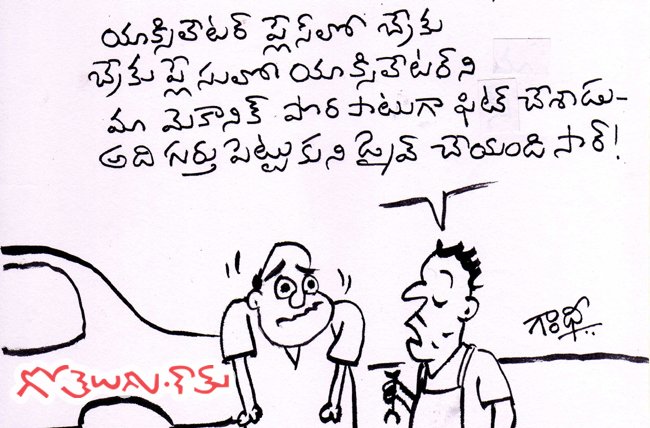 యాక్సిలేటర్ ప్లేస్‌లో బ్రేకు
బ్రేకు ప్లేసులో యాక్సిలేటర్‌ని
మా మెకానిక్ పొరపాటుగా ఫిట్ చేశాడు-
అది గుర్తు పెట్టుకుని డ్రైవ్ చేయండి సార్!
గాంధీ..
గోతెలుగు.కామ్